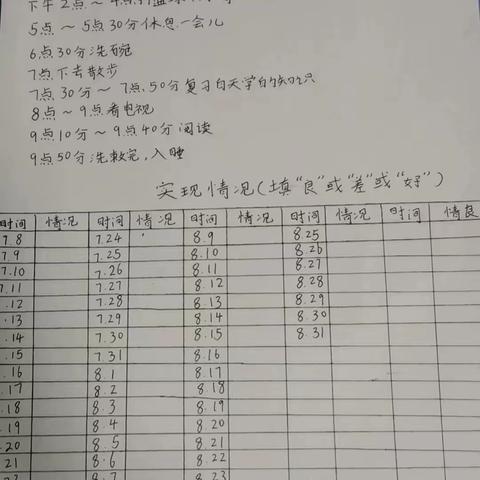 下午2点～4点打篮球
5点～5点30分休息一会儿
6点30分洗碗
7点下去散步
7点30分～7点50分复习白天学的知识
8点～9点看电视
9点10分～9点40分阅读
9点50分洗漱完,入睡
实现情况(填“良”或“差”或“好”)
时间 情况 时间 情况 时间 情况 时间 情况 时间 情良
7.8 7.24 8.9 8.25
7.9 7.25 8.10 8.26
7.10 7.26 8.11 8.27
7.11 7.27 8.12 8.28
.12 7.28 8.13 8.29
.13 7.29 8.14 8.30
.14 7.30 8.15 8.31
.15 7.31 8.16
.16 8.1 8.17
.17 8.2 8.18
.18 8.3 8.19
.19 8.4 8.20
.20 8.5 8.21
.21 8.6 8.22
8.7 8.23